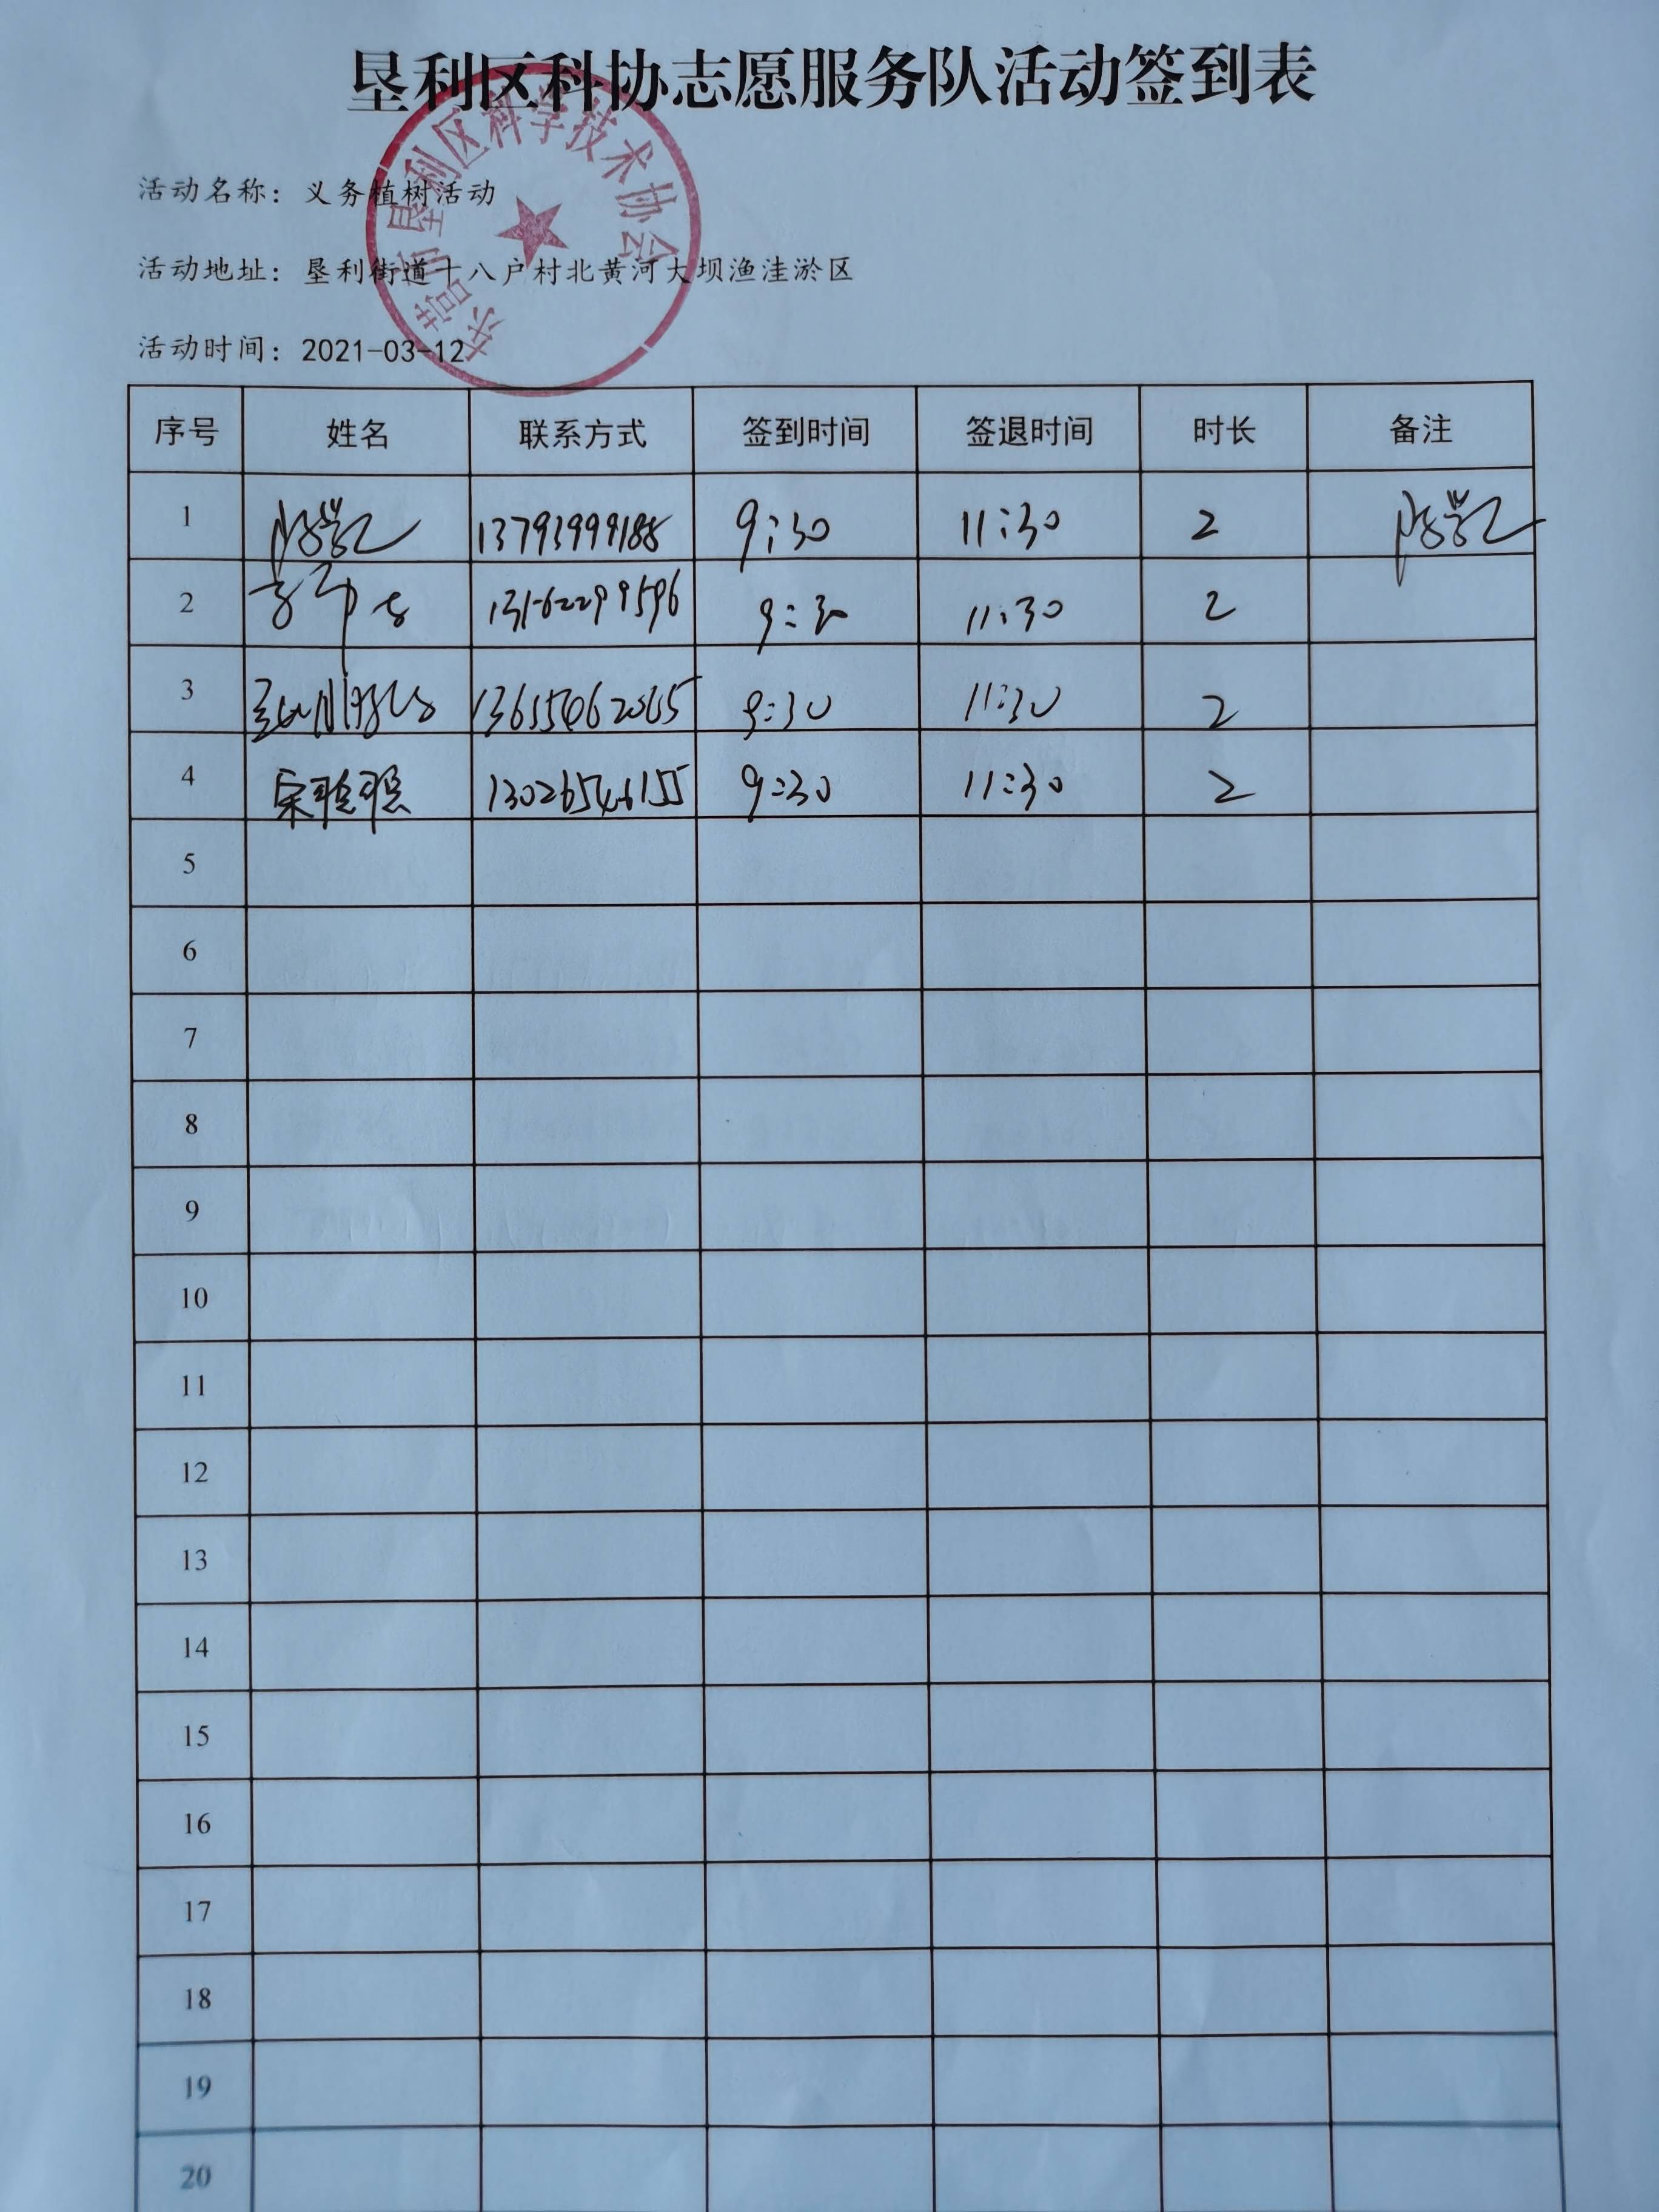 垦利区科协志愿服务队活动签到表
东营市垦利区科学技术协会
活动名称：义务植树活动
活动地址：垦利街道十八户村北黄河大坝渔洼淤区
活动时间：2021-03-12
序号 姓名 联系方式 签到时间 签退时间 时长 备注
1 13793999188 9:30 11:30 2
2 9:30 11:30 2
3 9:30 11:30 2
4 宋聪聪 13026546155 9:30 11:30 2
5
6
7
8
9
10
11
12
13
14
15
16
17
18
19
20